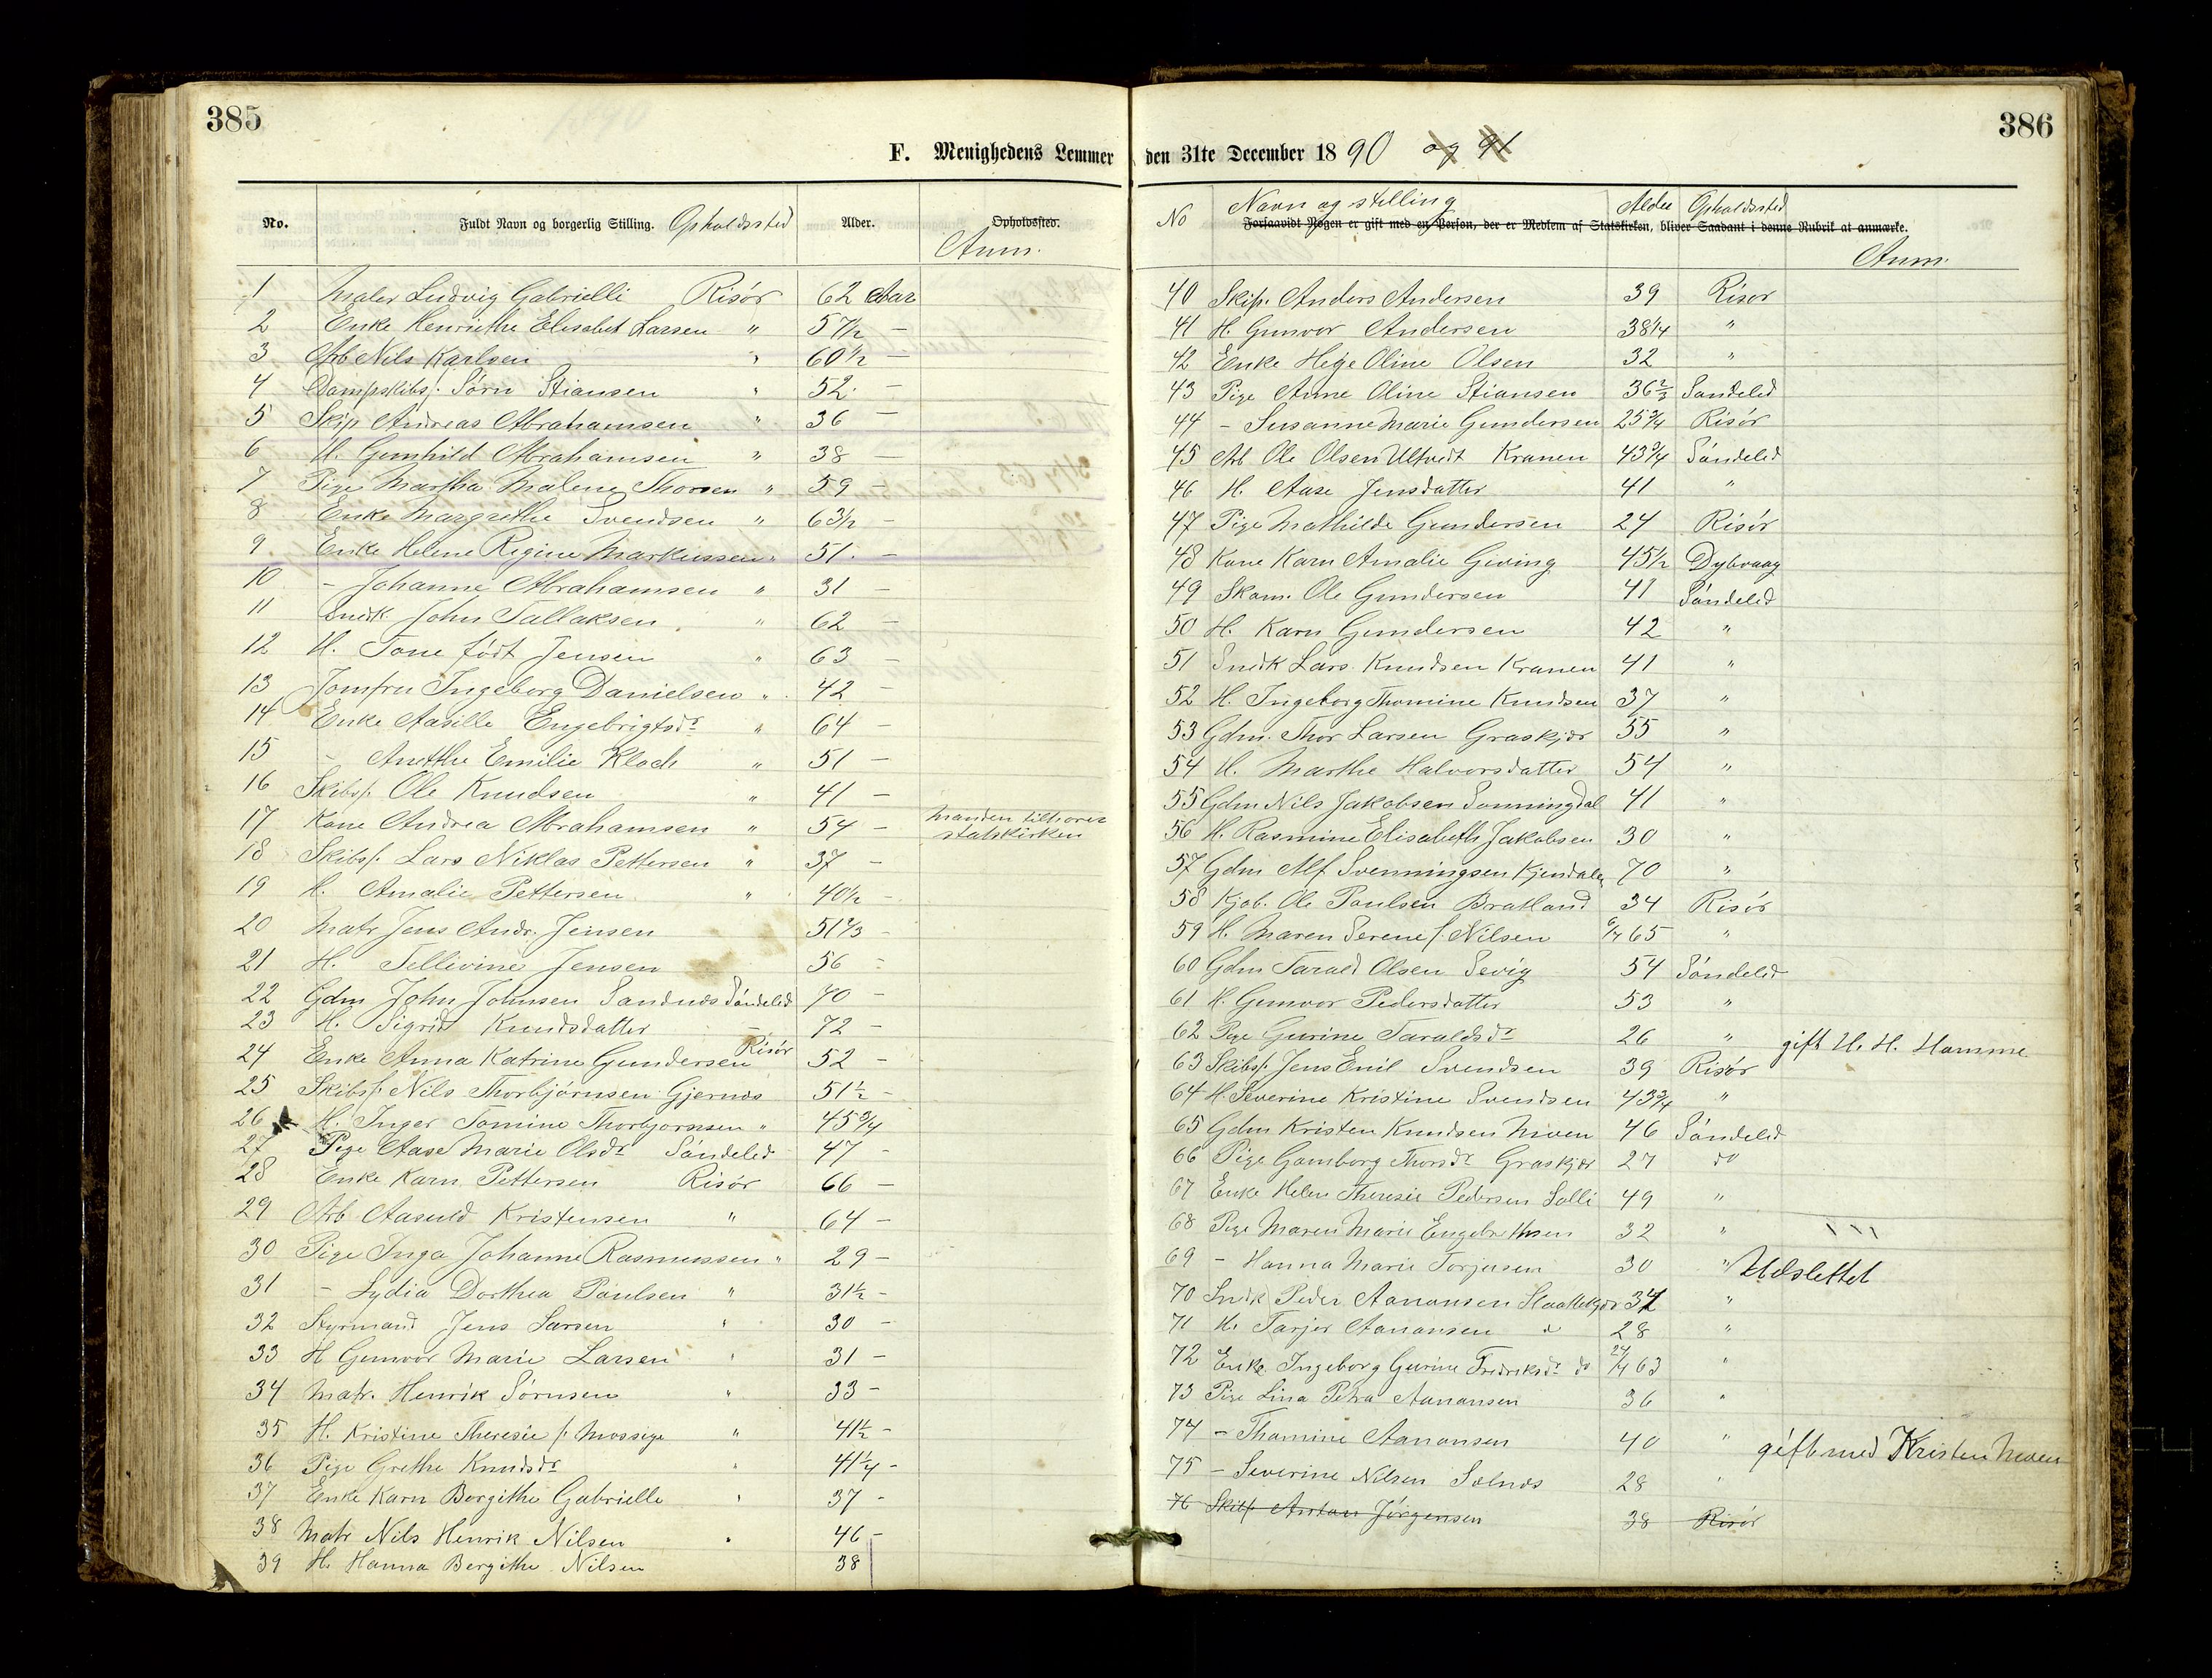 385
F. Menighedens Lemmer
No. Fuldt Navn og borgerlig Stilling. Opholdssted Alder. Opholdssted. Anm.
1 Maler Ludvig Gabrielli Risör 62 Aar
2 Enke Henriethe Elisabet Larsen " 57½ –
3 Arb Nils Karlsen " 60½ –
4 Dampskibsf. Sörn Stiansen " 52 –
5 Skip Andreas Abrahamsen " 36 –
6 H. Gunhild Abrahamsen " 38 –
7 Pige Martha Malene Thorsen " 59 –
8 Enke Margrethe Svendsen " 63½ –
9 Enke Helene Regine Markussen " 51. –
10 – Johanne Abrahamsen " 31 –
11 Snedk. John Tallaksen " 62 –
12 H. Tone födt Jensen " 63 –
13 Jomfru Ingeborg Danielsen " 42 –
14 Enke Aasille Engebrigtsdr " 64 –
15 – Anethe Emilie Kloch " 51 –
16 Skibsf. Ole Knudsen " 41 –
17 Kone Andrea Abrahamsen " 54 – Manden tilhorer statskirken
18 Skibsf. Lars Niklas Pettersen " 37 –
19 H. Amalie Pettersen " 40½ –
20 Matr Jens Andr. Jensen 51⅔ –
21 H. Tellivine Jensen 56 –
22 Gdm John Johnsen Sandnes Söndeled 70 –
23 H. Sigrid Knudsdatter – 72 –
24 Enke Anna Katrine Gundersen Risör 52 –
25 Skibsf. Nils Thorbjörnsen Gjernes 51½ –
26 H. Inger Tomine Thorbjornsen " 45¾
27 Pige Aase Marie Olsdr Söndeled 47 –
28 Enke Karn Pettersen Risör 66 –
29 Arb Aasuld Kristensen " 64 –
30 Pige Inga Johanne Rasmussen " 29 –
31 – Lydia Dorthea Paulsen " 31½ –
32 Styrmand Jens Larsen " 30 –
33 H Gunvor Marie Larsen " 31 –
34 Matr. Henrik Sörnsen " 33 –
35 H. Kristine Theresie f. Mossige " 41½ –
36 Pige Grethe Knudsdr " 41¼ –
37 Enke Karn Borgithe Gabrielle " 37 –
38 Matr Nils Henrik Nilsen " 46 –
39 H. Hanna Bergithe Nilsen 38
386
den 31te December 18 90 og 91
No Navn og stilling Alder Opholdssted
Forsaavidt Nogen er gift med en Person, der er Medlem af Statskirken, bliver Saadant i denne Rubrik at anmærke.
Anm.
40 Skip. Anders Andersen 39 Risör
41 H. Gunvor Andersen 38¼ "
42 Enke Hege Oline Olsen 32 "
43 Pige Anne Oline Stiansen 36⅔ Sandeled
44 – Susanne Marie Gundersen 25¾ Risör
45 Arb Ole Olsen Ultvedt Kranen 43¾ Söndeled
46 H. Aase Jensdatter 41 "
47 Pige Mathilde Gundersen 24 Risör
48 Kone Karn Amalie Giving 45½ Dybvaag
49 Skom. Ole Gundersen 41 Söndeled
50 H. Karn Gundersen 42 "
51 Snedk Lars Knudsen Kranen 41 "
52 H. Ingeborg Thomine Knudsen 37 "
53 Gdm. Thor Larsen Graskjær 55 "
54 H. Marthe Halvorsdatter 54 "
55 Gdm Nils Jakobsen Sonningdal 41 "
56 H. Rasmine Elisabeth Jakobsen 30 "
57 Gdm Alf Svenningsen Kjendalen 70 "
58 Kjøb. Ole Paulsen Bratland 34 Risör
59 H. Maren Serene f. Nilsen 6/7 65 "
60 Gdm Tarald Olsen Sevig 54 Söndeled
61 H. Gunvor Pedersdatter 53 "
62 Pige Gurine Taraldsdr 26 " gift H. H. Hamme
63 Skibsf. Jens Emil Svendsen 39 Risör
64 H. Severine Kristine Svendsen 43¾ "
65 Gdm Kristen Knudsen Moen 46 Söndeled
66 Pige Gamborg Thorsdr Graskjær 27 do
67 Enke Helene Theresie Pedersen Lolli 49 "
68 Pige Maren Marie Engebrethsen 32 "
69 – Hanna Marie Torjusen 30 " Udslettet
70 Snedk Peder Aanonsen 37 "
71 H. Tarjer Aanonsen 28 "
72 Enke Ingeborg Gurine Fredriksdr do 63 "
73 Pige Lina Petra Aanonsen 36 "
74 – Thomine Aanonsen 40 " gift med Kristen Moen
75 – Severine Nilsen Solnes 28 "
76 Skibsf. Anton Jörgensen 38 Risör